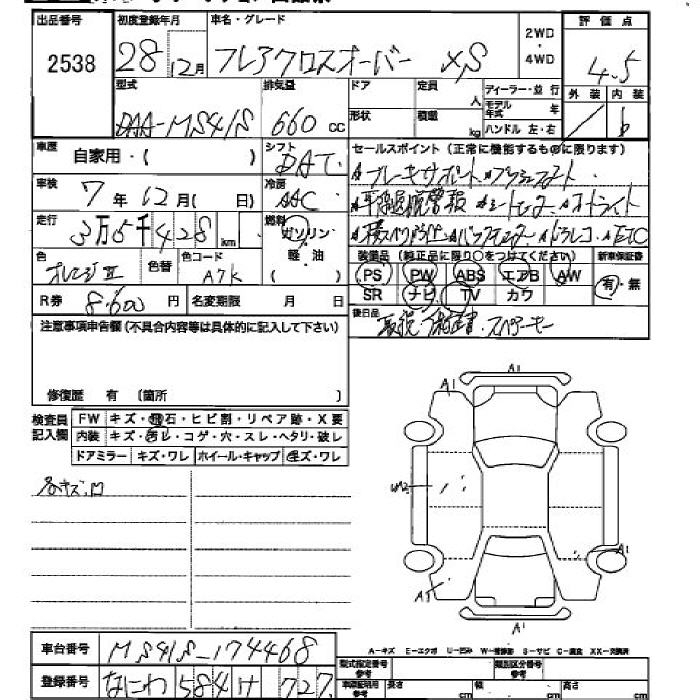 出品番号 初度登録年月 車名・グレード 2WD・4WD 評価点
2538 28 年 12月 フレアクロスオーバー XS 4.5
型式 排気量 ドア 定員 人 ディーラー・並行 外装 内装
DAA-MS41S 660 cc 形状 積載 kg モデル年式 年 ハンドル 左・右 b
車歴 自家用・( ) シフト DAT セールスポイント(正常に機能するものに限ります)
車検 7年12月( 日) 冷房 AAC
走行 3万5千428 km 燃料 ガソリン・軽・油 ETC
色 オレンジII 色替 色コード A7K 装備品(純正品に限り○をつけてください) 新車保証書
PS PW ABS エアB AW 有・無
R券 8.600 円 名変期限 月 日 SR ナビ TV カワ
注意事項申告欄(不具合内容等は具体的に記入して下さい) 後日品 取説 保証書 スペアキー
修復歴 有 (箇所 )
検査員記入欄 FW キズ・飛石・ヒビ割・リペア跡・X要
内装 キズ・汚レ・コゲ・穴・スレ・ヘタリ・破レ
ドアミラー キズ・ワレ ホイール・キャップ キズ・ワレ
A1
A1
A1
A1
車台番号 MS41S-174468
A-キズ E-エクボ U-凹み W-補修跡 S-サビ C-腐食 XX-交換済
登録番号 なにわ 584 け 727
型式指定番号 参考 類別区分番号 参考
長さ cm 幅 cm 高さ cm